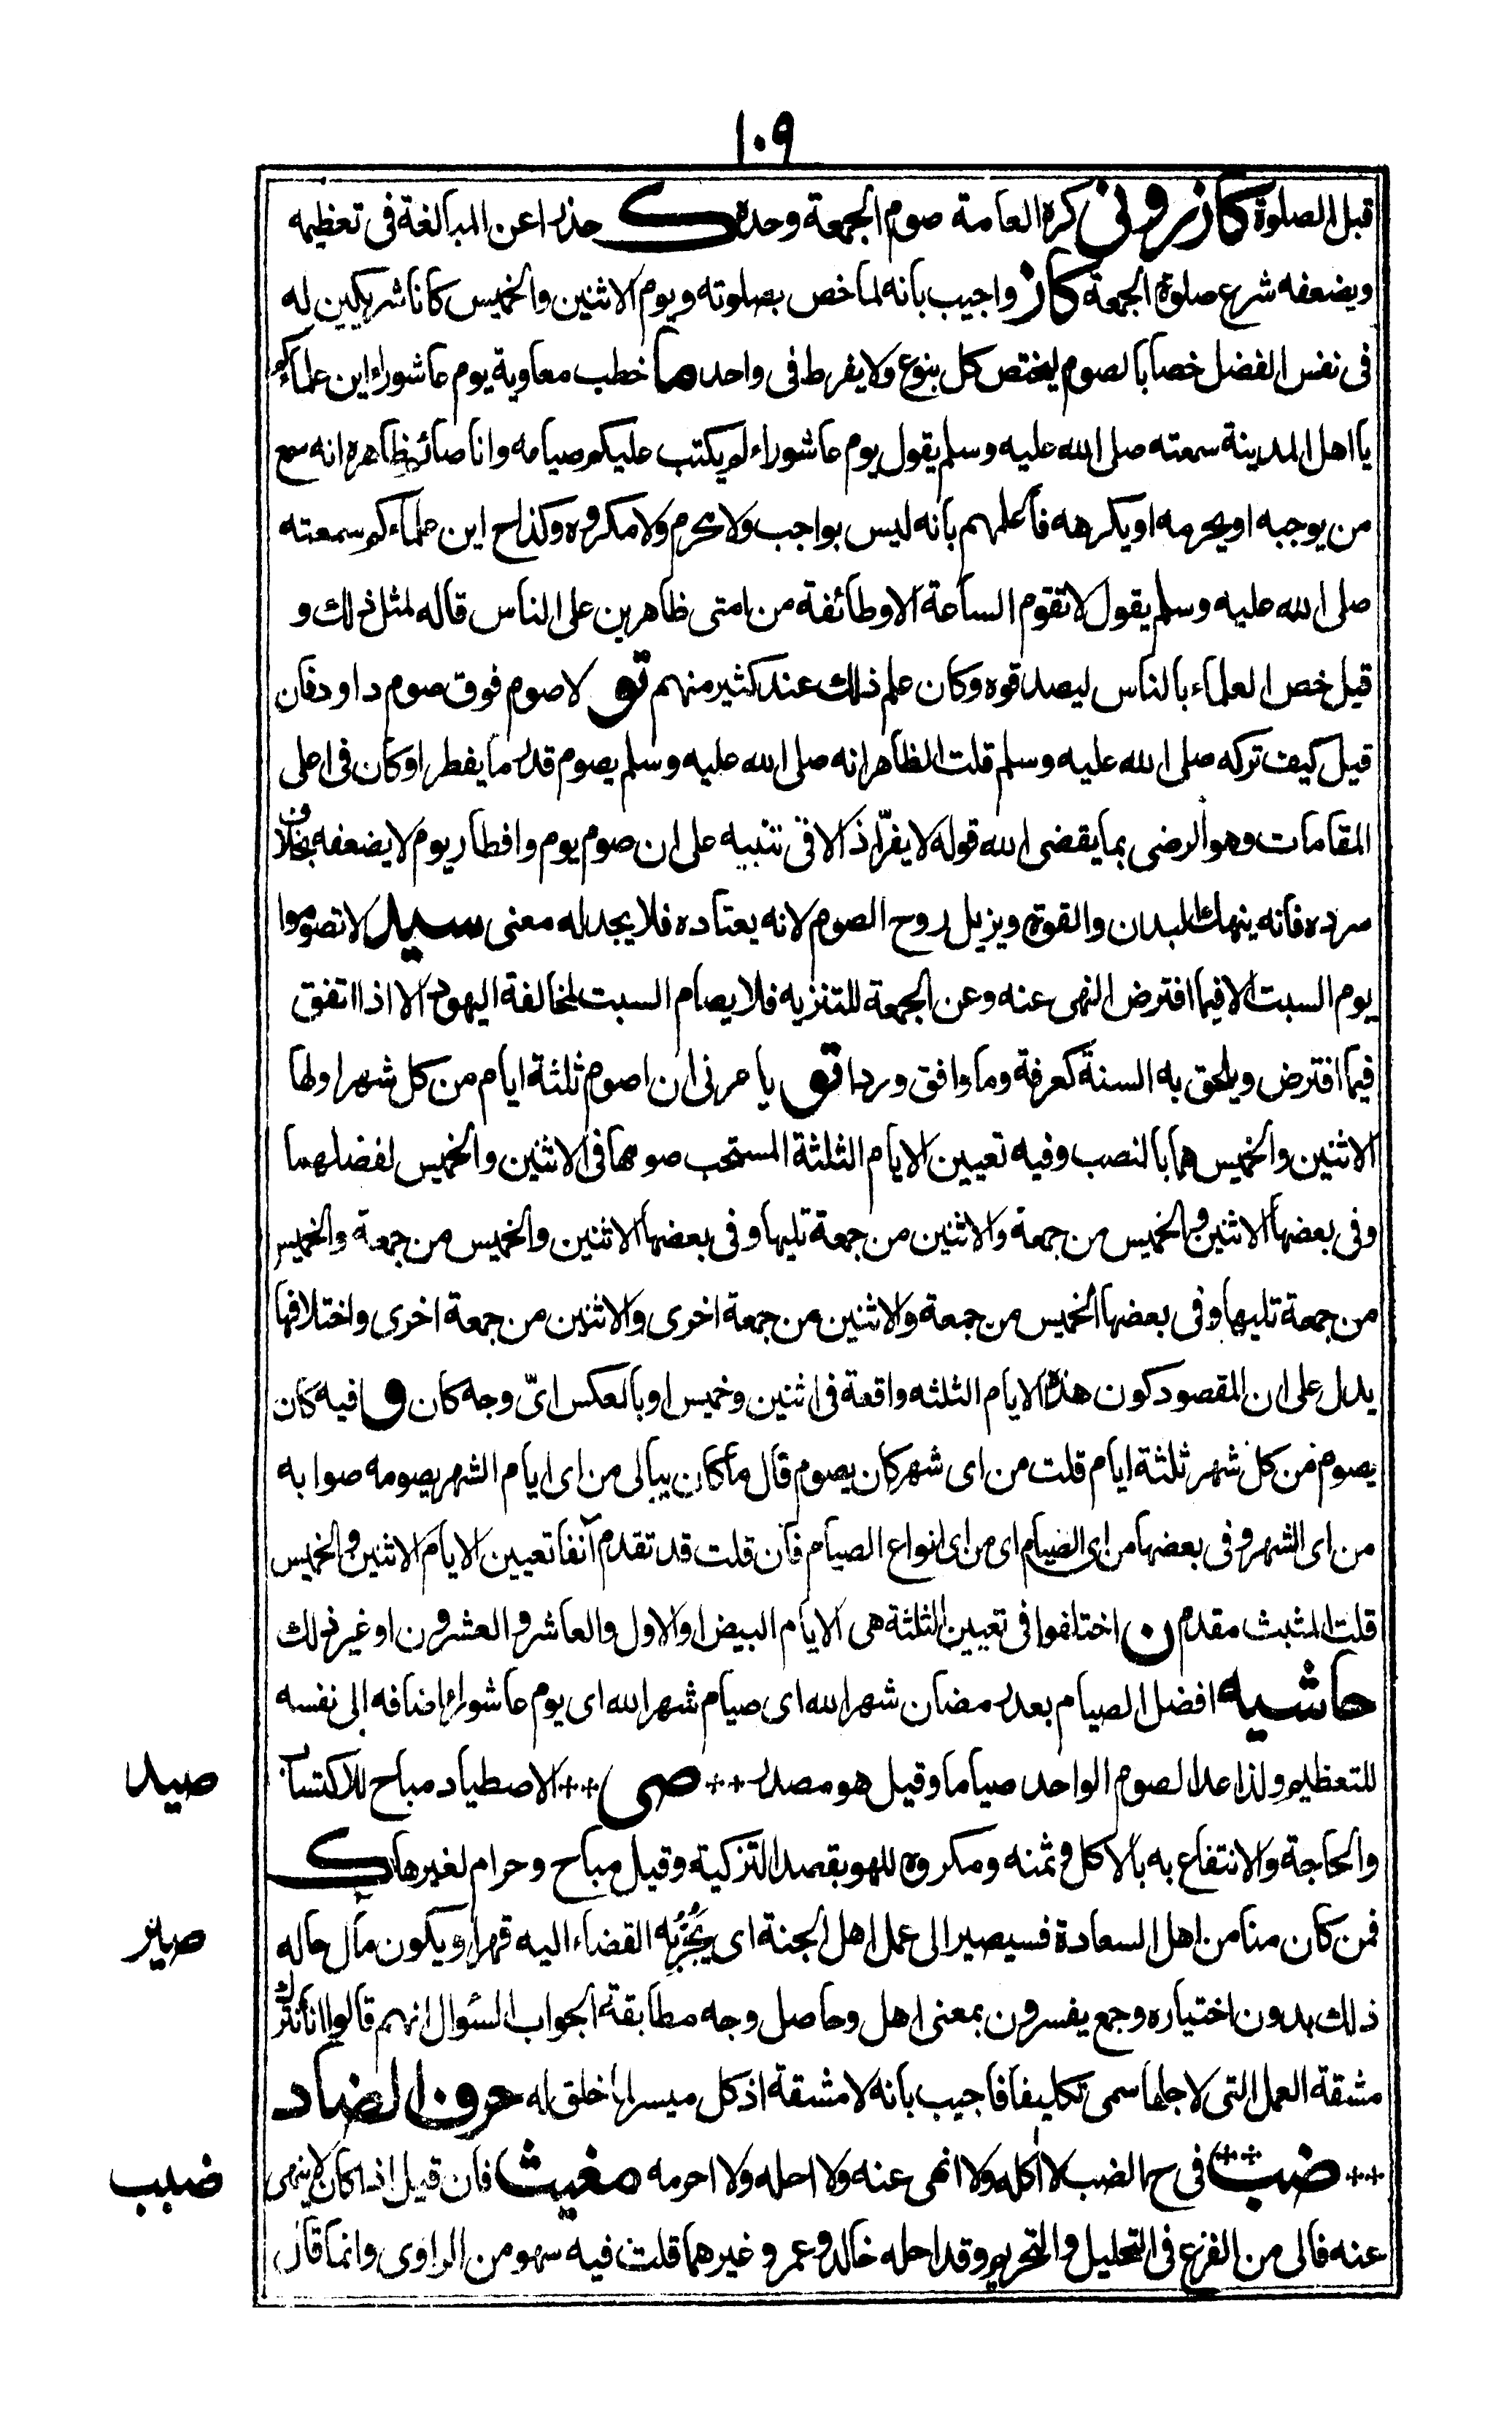 ١٠٩
قبل الصلوة كازرونى كره العامة صوم الجمعة وحده ك حذرا عن المبالغة فى تعظيمه
ويضعفه شرع صلوة الجمعة كاز واجيب بانه لما خص بصلوته ويوم الاثنين والخميس كانا شريكين له
فى نفس الفضل خصا بالصوم ليختص كل بنوع ولا يفرط فى واحد ما خطب معاوية يوم عاشوراء اين علماءكم
يا اهل المدينة سمعته صلى الله عليه وسلم يقول يوم عاشوراء لم يكتب عليكم صيامه وانا صائم ظاهره انه سمع
من يوجبه او يحرمه او يكرهه فاعلمهم بانه ليس بواجب ولا محرم ولا مكروه وكذا ح اين علماءكم سمعته
صلى الله عليه وسلم يقول لا تقوم الساعة الا وطائفة من امتى ظاهرين على الناس قاله لمثل ذلك و
قيل خص العلماء بالناس ليصدقوه وكان علم ذلك عند كثير منهم تو لا صوم فوق صوم داود فان
قيل كيف تركه صلى الله عليه وسلم قلت الظاهر انه صلى الله عليه وسلم يصوم قدر ما يفطر او كان فى اعلى
المقامات وهو الرضى بما يقضى الله قوله لا يفرّ اذا لاقى تنبيه على ان صوم يوم وافطار يوم لا يضعفه بخلاف
سرده فانه ينهك البدن والقوة ويزيل روح الصوم لانه يعتاده فلا يجد له معنى سيد لا تصوموا
يوم السبت الا فيما افترض النهى عنه وعن الجمعة للتنزيه فلا يصام السبت لمخالفة اليهود الا اذا اتفق
فيما افترض ويلحق به السنة كعرفة وما وافق وردا تو يامرنى ان اصوم ثلثة ايام من كل شهر اولها
الاثنين والخميس هما بالنصب وفيه تعيين الايام الثلثة المستحب صومها فى الاثنين والخميس لفضلهما
وفى بعضها الاثنين والخميس من جمعة والاثنين من جمعة تليها وفى بعضها الاثنين والخميس من جمعة والخميس
من جمعة تليها وفى بعضها الخميس من جمعة والاثنين من جمعة اخرى والاثنين من جمعة اخرى واختلافها
يدل على ان المقصود كون هذه الايام الثلثه واقعة فى اثنين وخميس او بالعكس اىّ وجه كان و فيه كان
يصوم من كل شهر ثلثة ايام قلت من اى شهر كان يصوم قال ما كان يبالى من اى ايام الشهر يصومه صوابه
من اى الشهر و فى بعضها من اى الصيام اى من اى انواع الصيام فان قلت قد تقدم آنفا تعيين الايام الاثنين والخميس
قلت المثبت مقدم ن اختلفوا فى تعيين الثلثة هى الايام البيض او الاول والعاشر والعشرون او غير ذلك
حاشيه افضل الصيام بعد رمضان شهر الله اى صيام شهر الله اى يوم عاشوراء اضافه الى نفسه
للتعظيم ولذا عد الصوم الواحد صياما وقيل هو مصدر ++ صى ++ الاصطياد مباح للاكتساب
صيد
والحاجة والانتفاع به بالاكل وثمنه ومكروه للهو بقصد التزكية وقيل مباح وحرام لغيرها ك
فمن كان منا من اهل السعادة فسيصير الى عمل اهل الجنة اى القضاء اليه قهرا ويكون مآل حاله
صير
ذلك بدون اختياره وجمع يفسرون بمعنى اهل وحاصل وجه مطابقة الجواب السؤال انهم قالوا انا نترك
مشقة العمل التى لاجلها سمى تكليفا فاجيب بانه لا مشقة اذ كل ميسر لما خلق له حرف الضاد
++ ضب ++ فى ح الضب لا آكله ولا انهى عنه ولا احله ولا احرمه مغيث فان قيل اذا كان لا ينهى
ضبب
عنه فالى من الفزع فى التحليل والتحريم وقد احله خالد وعمر وغيرهما قلت فيه سهو من الراوى وانما قال